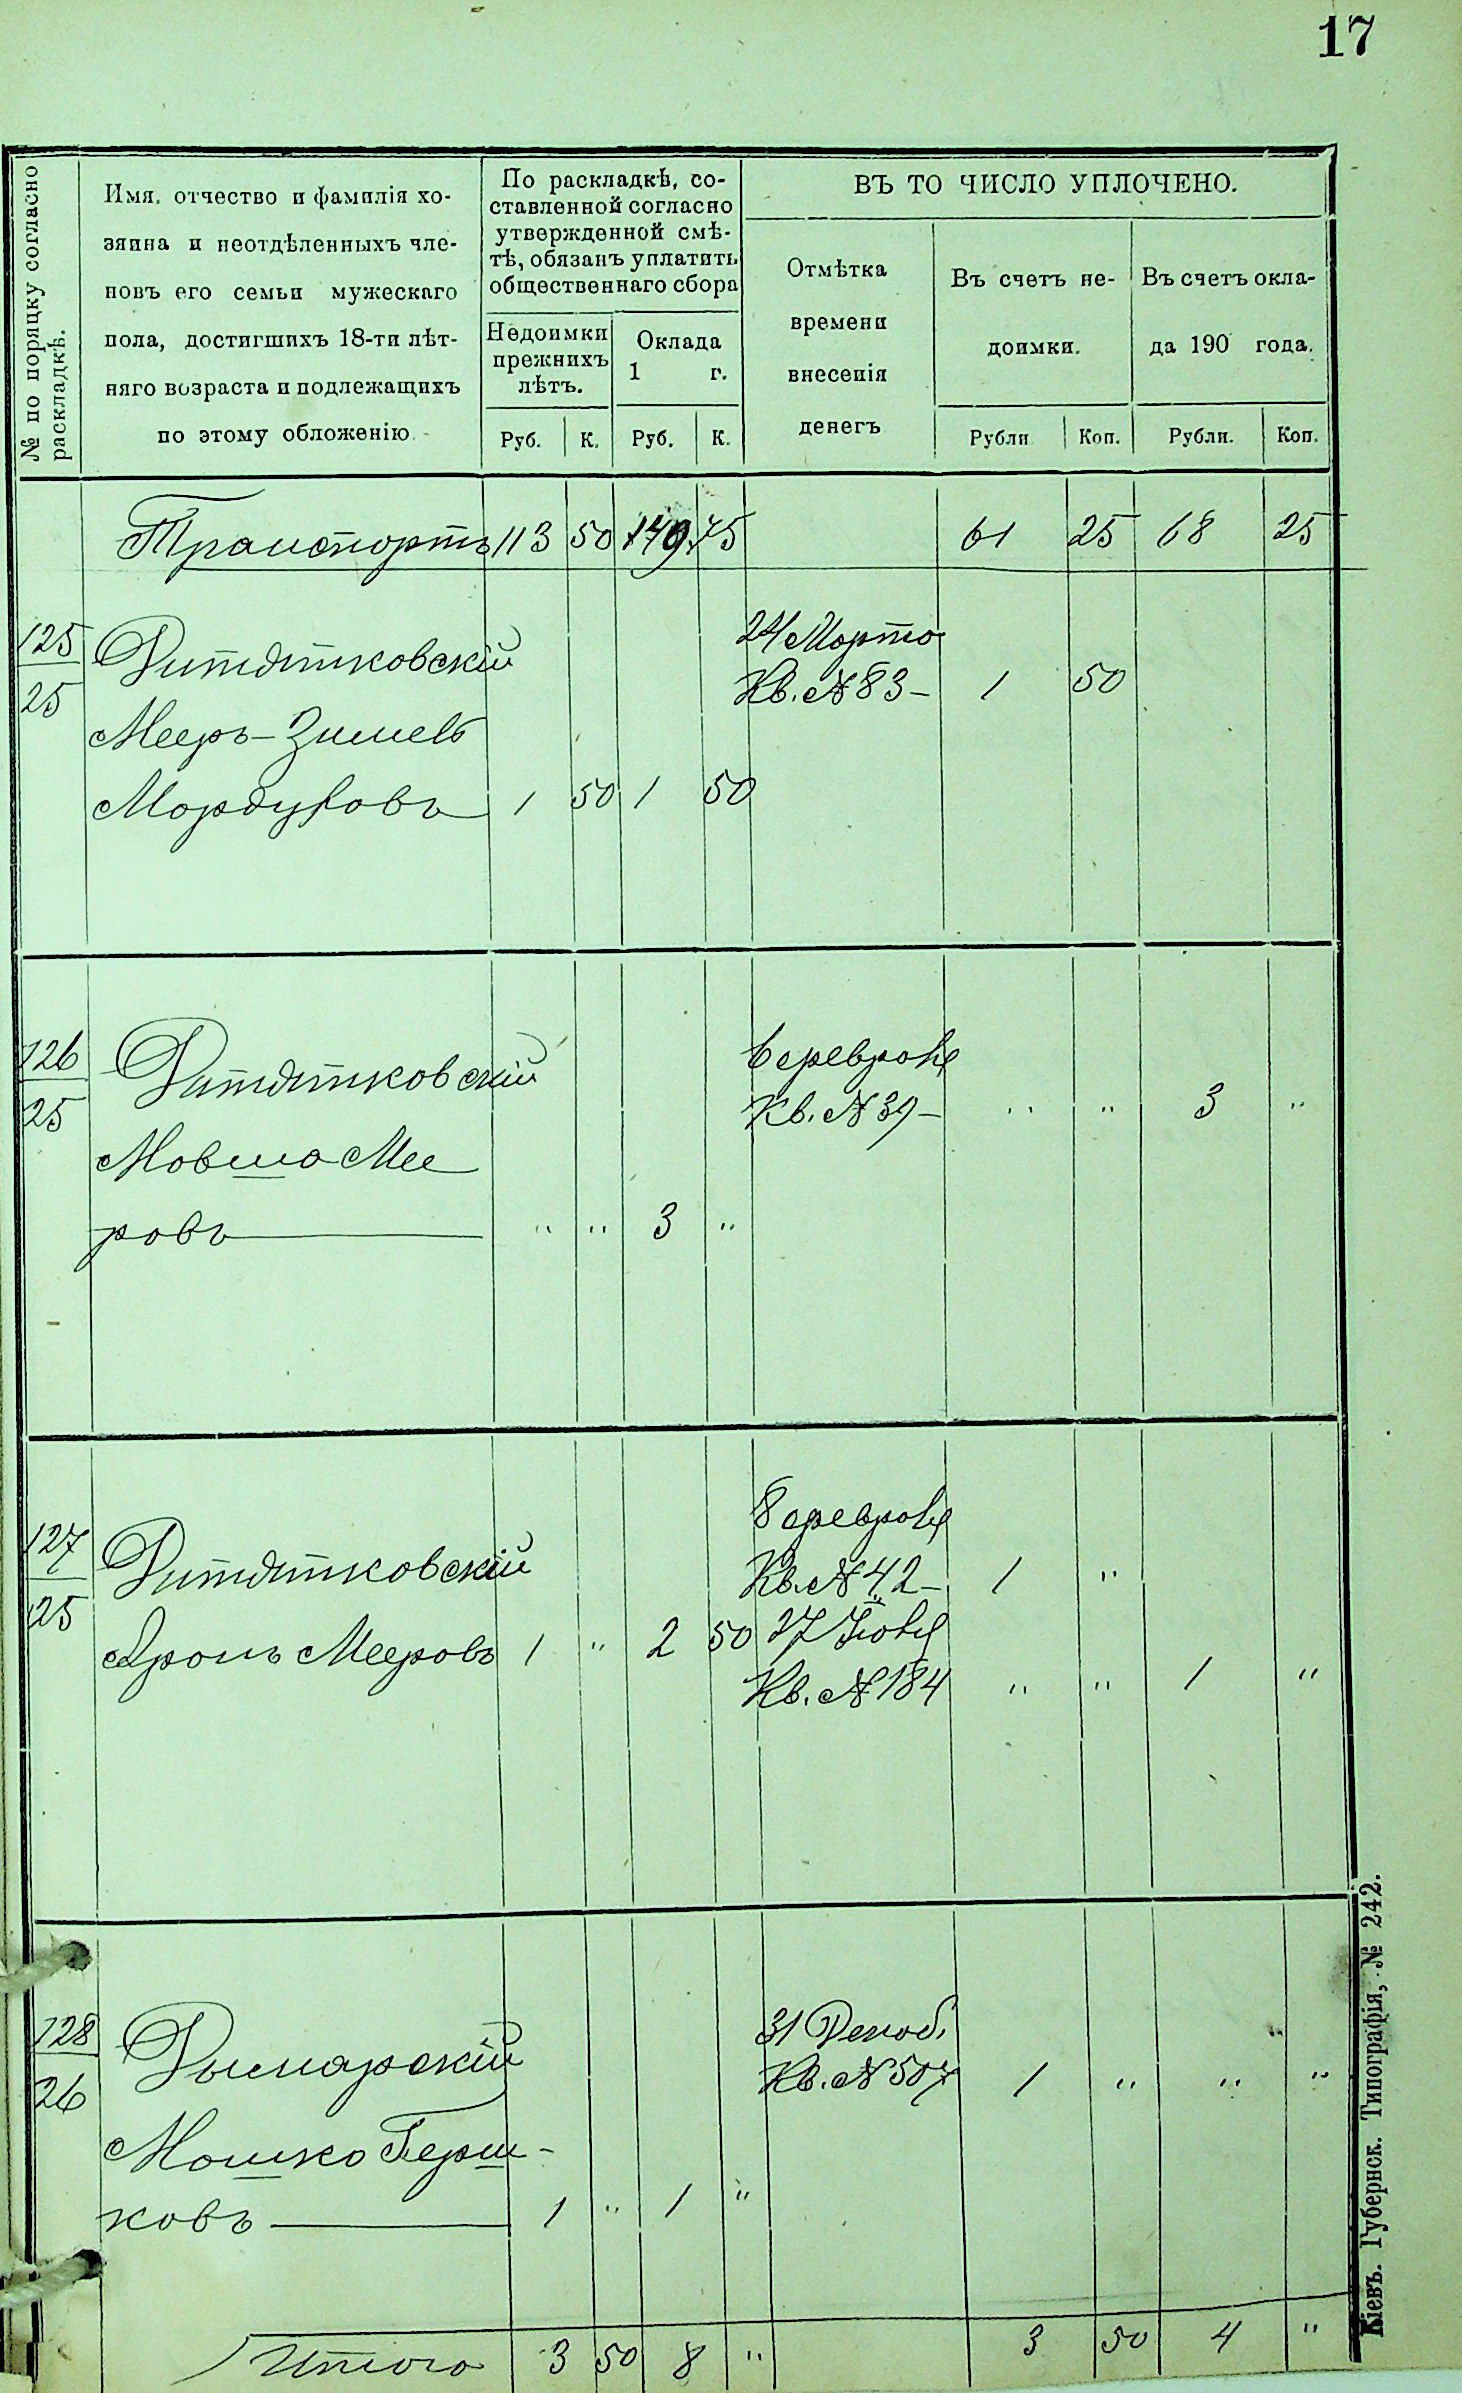 17
№ по поряцку согласно
раскладкѣ.
Имя, отчество и фамилія хо-
зяина и неотдѣленныхъ чле-
новъ его семьи мужескаго
пола, достигшихъ 18-ти лѣт-
няго возраста и подлежащихъ
по этому обложенію
По раскладкѣ, со-
ставленной согласно
утвержденной смѣ-
тѣ, обязанъ уплатить
общественнаго сбора
Недоимки
прежнихъ
лѣтъ.
Оклада
1 г.
Руб. К. Руб. К.
ВЪ ТО ЧИСЛО УПЛОЧЕНО.
Отмѣтка
времени
внесенія
денегъ
Въ счетъ не-
доимки.
Въ счетъ окла-
да 190 года.
Рубли Коп. Рубли. Коп.
Транспортъ 113 50 149 75 61 25 68 25
125
25
Дитятковскій
Мееръ-Зимель
Мордуховъ 1 50 1 50
24 Марта
Кв. № 83 - 1 50
126
25
Дитятковскій
Мовша Мее
ровъ " " 3 "
6 февраля
Кв. № 39 - " " 3 "
127
25
Дитятковскій
Аронъ Мееровъ 1 " 2 50
8 февраля
Кв. № 42 - 1 "
27 Іюля
Кв. № 184 " " 1 "
128
26
Дымарскій
Мошко Герш-
ковъ 1 " 1 "
31 Декаб.
Кв. № 507 1 " " "
Итого 3 50 8 " 3 50 4 "
Кіевъ. Губернск. Типографія, № 242.